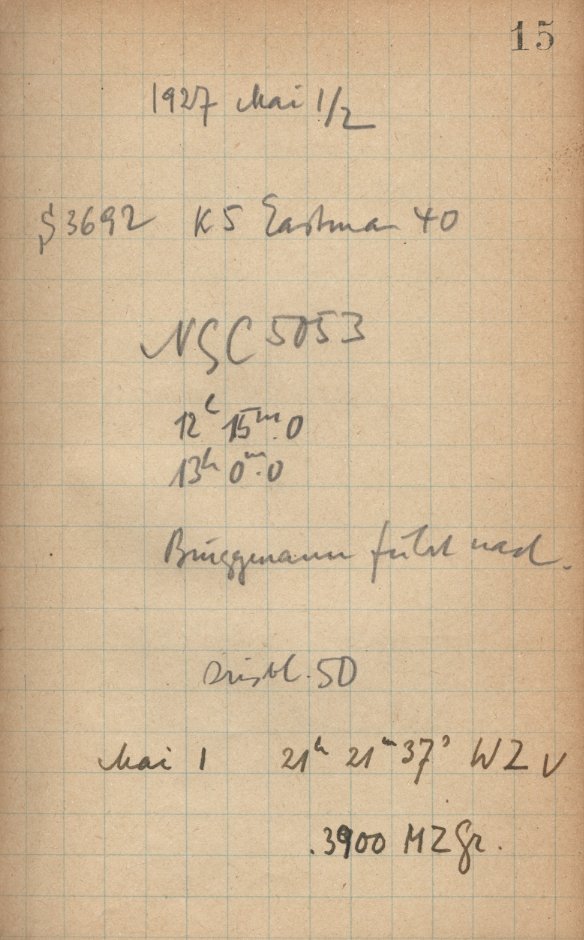 15
1927 Mai 1/2
S 3692 K5 Eastman 40
NGC 5053
12h 15m.0
13h 0m.0
Brüggemann führt nach.
Irisbl. 50
Mai 1 21h 21m 37s WZ V
.3900 MZGr.